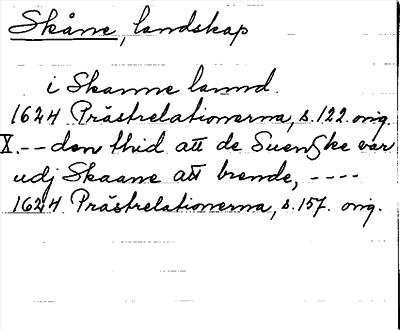 Skåne, landskap
i Skanne lannd.
1624 Prästrelationerna, s.122. orig.
X.-- den thid att de Suenske var
udj Skaane att brende, ----
1624 Prästrelationerna, s.157. orig.